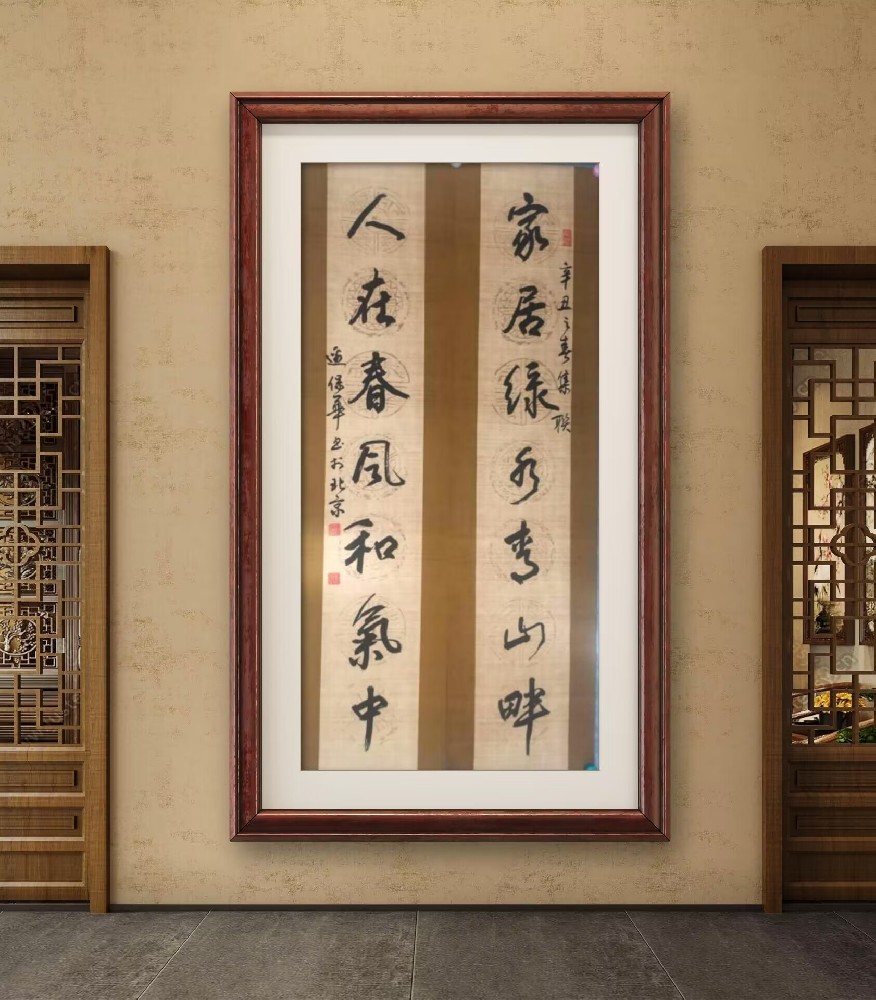 辛丑之春集联
家居绿水青山畔
人在春风和氣中
保华书于北京